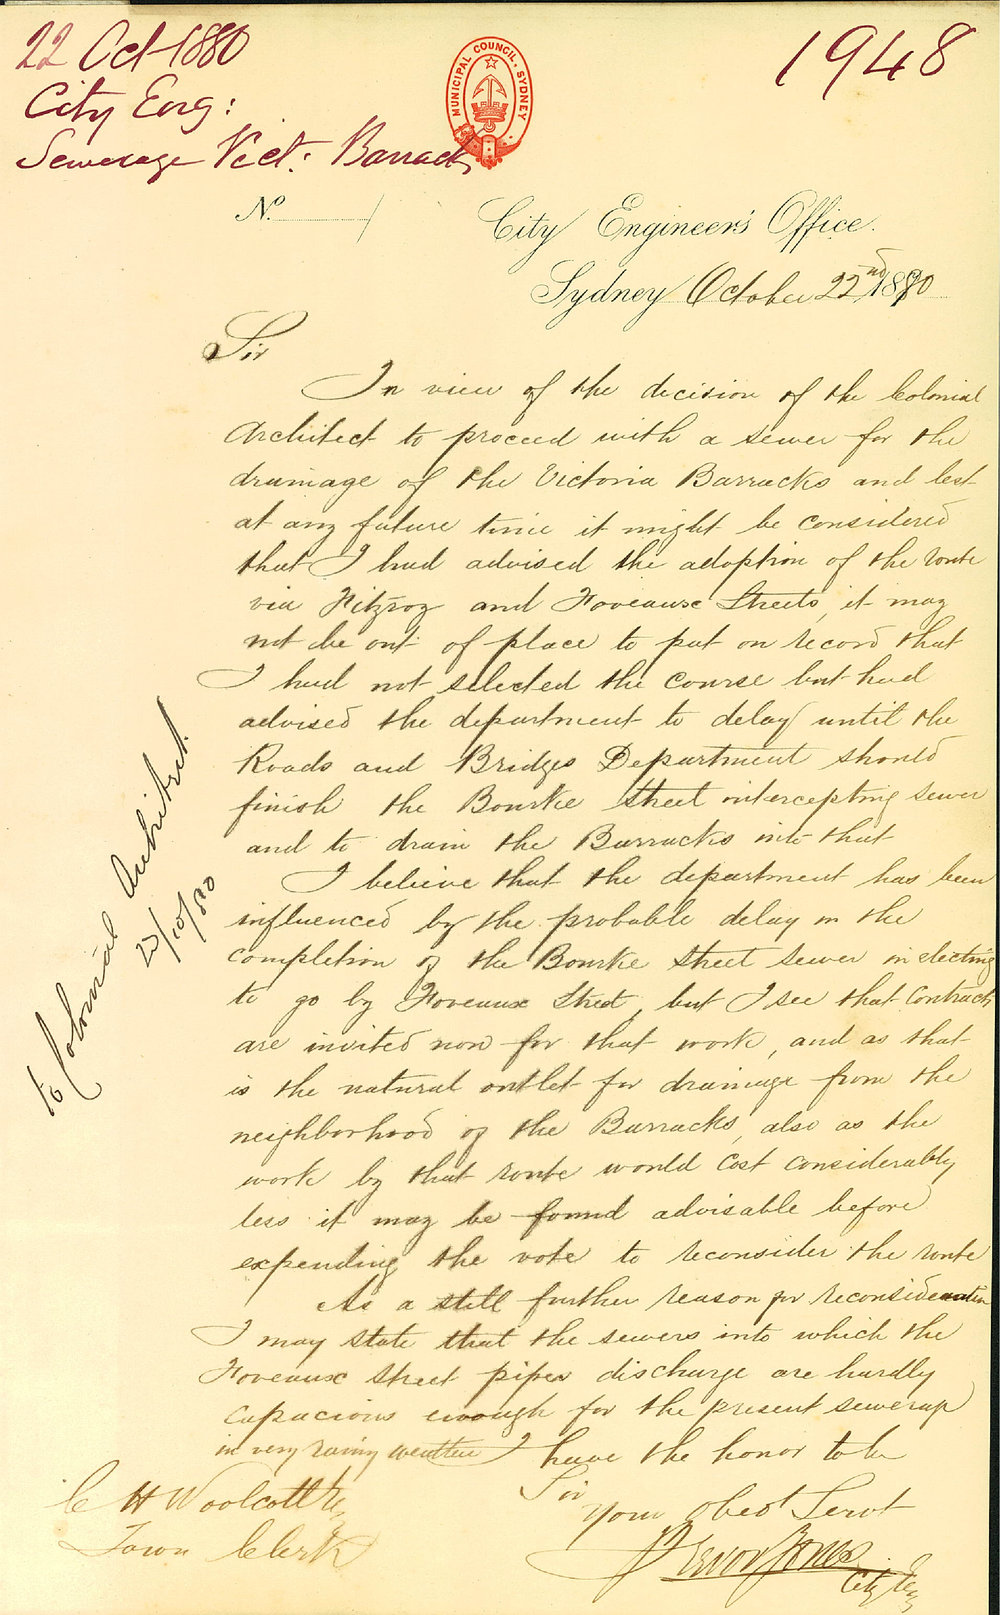 22 Oct 1880
City Eng:
Sewerage Vict: Barracks
1948
MUNICIPAL COUNCIL, SYDNEY
No. /
City Engineer's Office.
Sydney October 22nd 1880
Sir
In view of the decision of the Colonial
Architect to proceed with a sewer for the
drainage of the Victoria Barracks and lest
at any future time it might be considered
that I had advised the adoption of the route
via Fitzroy and Foveaux Streets, it may
not be out of place to put on record that
I had not selected the course but had
advised the department to delay until the
Roads and Bridges Department should
finish the Bourke Street intercepting sewer
and to drain the Barracks into that
I believe that the department has been
influenced by the probable delay in the
completion of the Bourke Street Sewer in electing
to go by Foveaux Street, but I see that contracts
are invited now for that work, and as that
is the natural outlet for drainage from the
neighborhood of the Barracks, also as the
work by that route would cost considerably
less it may be found advisable before
expending the vote to reconsider the route
As a still further reason for reconsideration
I may state that the sewers into which the
Foveaux Street pipes discharge are hardly
capacious enough for the present sewerage
in very rainy weather I have the honor to be
Sir
Your Obedt Servt
Trevor Jones
City Eng
C H Woolcott Esq
Town Clerk
To Colonial Architect
23/10/80